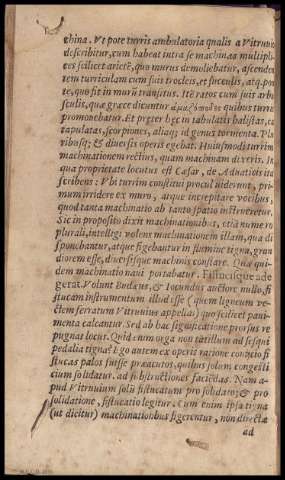 china. Vt pote turris ambulatoria qualis a Vitruuio
describitur, cum habeat intra se machinas multipli-
ces scilicet arietē, quo murus demoliebatur, ascenden
tem turriculam cum suis trocleis, et succulis, atq; pon
te, quo fit in murū transitus. Itē ratos cum suis arbu
sculis, quæ græce dicuntur quibus turre
promouebatur. Et preter hęc in tabulatis balistas, ca
tapultas, scorpiones, aliaq; id genus tormenta. Plu
ribusq; & diuersis operis egebat. Huiusmodi turrim
machinationem rectius, quam machinam dixeris. In
qua proprietate locutus est Cæsar, de Aduaticis ita
scribens: Vbi turrim constitui procul uiderunt, pri-
mum irridere ex muro, atque increpitare vocibus,
quod tanta machinatio ab tanto spatio instrueretur.
Sic in proposito dixit machinationibus, etiā numero
plurali, intelligi volens machinationem illam, qua di
sponebantur, atque figebantur in flumine tigna, gran
diorem esse, diuersisque machinis constare. Quæ qui-
dem machinatio naui portabatur. Fistucisque ade
gerat. Volunt Budæus, & Iocundus auctore nullo, fi
stucam instrumentum illud esse (quem ligneum ve-
ctem serratum Vitruuius appellat) quo scilicet paui-
menta calcantur. Sed ab hac significatione prorsus re
pugnat locus. Quid enim erga non tātillum ad sesqui
pedalia tigna? Ego autem ex operis ratione conijcio fi
stucas palos fuisse præacutos, quibus solum congesti
cium solidatur, ad substructiones faciēdas. Nam a-
pud Vitruuium solū fistucatum pro solidato; & pro
solidatione, fistucatio legitur. Cum enim ipsa tigna
(ut dicitur) machinationibus figerentur, non directæ
ad